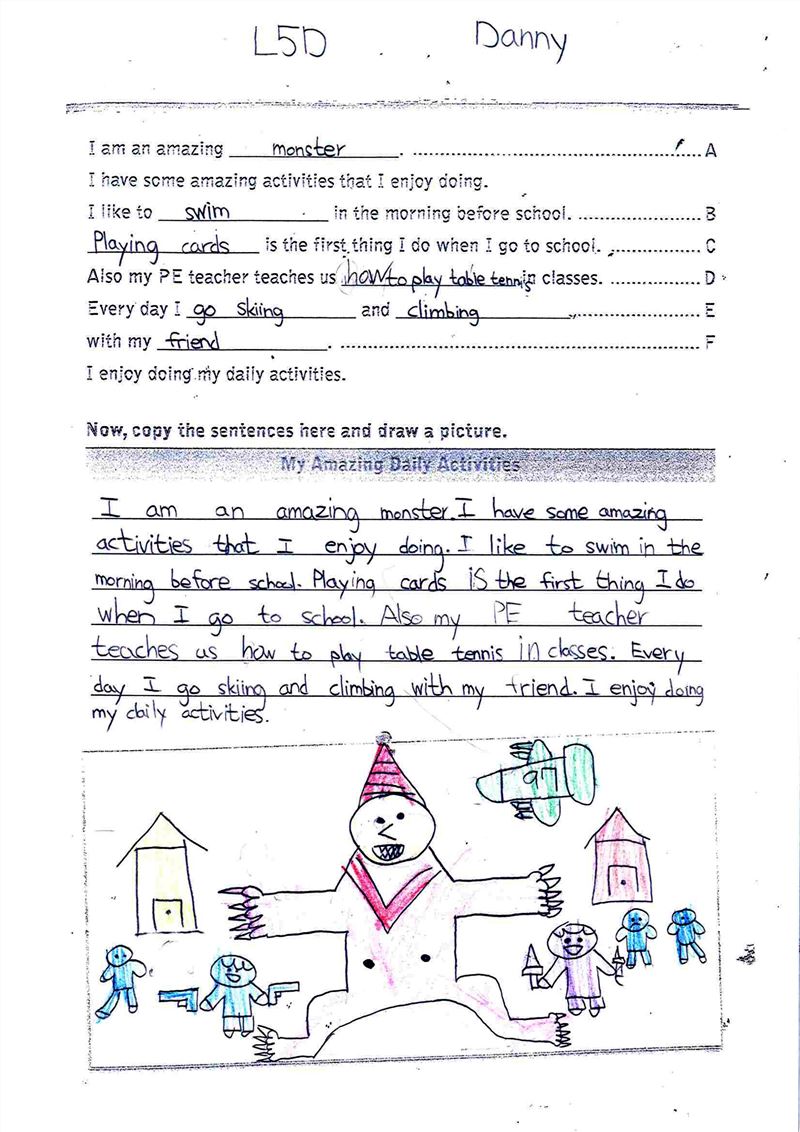 L5D Danny
I am an amazing monster. A
I have some amazing activities that I enjoy doing.
I like to swim in the morning before school. B
Playing cards is the first thing I do when I go to school. C
Also my PE teacher teaches us how to play table tennis in classes. D
Every day I go skiing and climbing E
with my friend. F
I enjoy doing my daily activities.
Now, copy the sentences here and draw a picture.
My Amazing Daily Activities
I am an amazing monster. I have some amazing
activities that I enjoy doing. I like to swim in the
morning before school. Playing cards is the first thing I do
when I go to school. Also my PE teacher
teaches us how to play table tennis in classes. Every
day I go skiing and climbing with my friend. I enjoy doing
my daily activities.
97